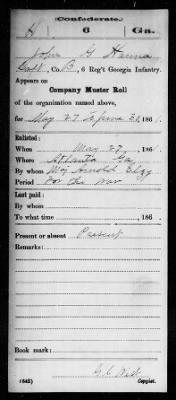 (Confederate.)
H 6 Ga.
John G Hanna
Capt, Co. B, 6 Reg't Georgia Infantry.
Appears on
Company Muster Roll
of the organization named above,
for May 27 To June 30, 1861.
Enlisted:
When May 27, 1861.
Where Atlanta Ga
By whom Maj Arnold Elzy
Period For the War
Last paid:
By whom
To what time , 186 .
Present or absent Present
Remarks:
Book mark:
(642) G. C. Copyist.